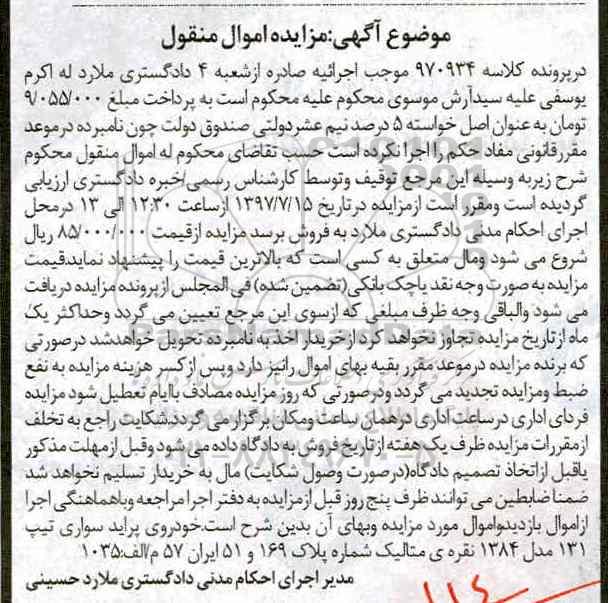 موضوع آگهی:مزایده اموال منقول
درپرونده کلاسه ۹۷۰۹۳۴ موجب اجرائیه صادره ازشعبه ۴ دادگستری ملارد له اکرم
یوسفی علیه سیدآرش موسوی محکوم علیه محکوم است به پرداخت مبلغ ۹/۰۵۵/۰۰۰
تومان به عنوان اصل خواسته ۵ درصد نیم عشردولتی صندوق دولت چون نامبرده درموعد
مقررقانونی مفاد حکم را اجرا نکرده است حسب تقاضای محکوم له اموال منقول محکوم
شرح زیربه وسیله این مرجع توقیف وتوسط کارشناس رسمی/خبره دادگستری ارزیابی
گردیده است ومقرر است ازمزایده درتاریخ ۱۳۹۷/۷/۱۵ ازساعت ۱۲:۳۰ الی ۱۳ درمحل
اجرای احکام مدنی دادگستری ملارد به فروش برسد مزایده ازقیمت ۸۵/۰۰۰/۰۰۰ ریال
شروع می شود ومال متعلق به کسی است که بالاترین قیمت را پیشنهاد نمایدقیمت
مزایده به صورت وجه نقد یاچک بانکی(تضمین شده) فی المجلس ازپرونده مزایده دریافت
می شود والباقی وجه ظرف مبلغی که ازسوی این مرجع تعیین می گردد وحداکثر یک
ماه ازتاریخ مزایده تجاوز نخواهد کرد ازخریدار اخذ به نامبرده تحویل خواهدشد درصورتی
که برنده مزایده درموعد مقرر بقیه بهای اموال رانیز دارد وپس ازکسر هزینه مزایده به نفع
ضبط ومزایده تجدید می گردد ودرصورتی که روز مزایده مصادف باایام تعطیل شود مزایده
فردای اداری درساعت اداری درهمان ساعت ومکان برگزار می گردد.شکایت راجع به تخلف
ازمقررات مزایده ظرف یک هفته ازتاریخ فروش به دادگاه داده می شود وقبل ازمهلت مذکور
یاقبل ازاتخاذ تصمیم دادگاه(درصورت وصول شکایت) مال به خریدار تسلیم نخواهد شد
ضمنا ضابطین می توانند ظرف پنج روز قبل ازمزایده به دفتر اجرا مراجعه وباهماهنگی اجرا
ازاموال بازدیدواموال مورد مزایده وبهای آن بدین شرح است.خودروی پراید سواری تیپ
۱۳۱ مدل ۱۳۸۴ نقره ی متالیک شماره پلاک ۱۶۹ و ۵۱ ایران ۵۷ م/الف:۱۰۳۵
مدیر اجرای احکام مدنی دادگستری ملارد حسینی